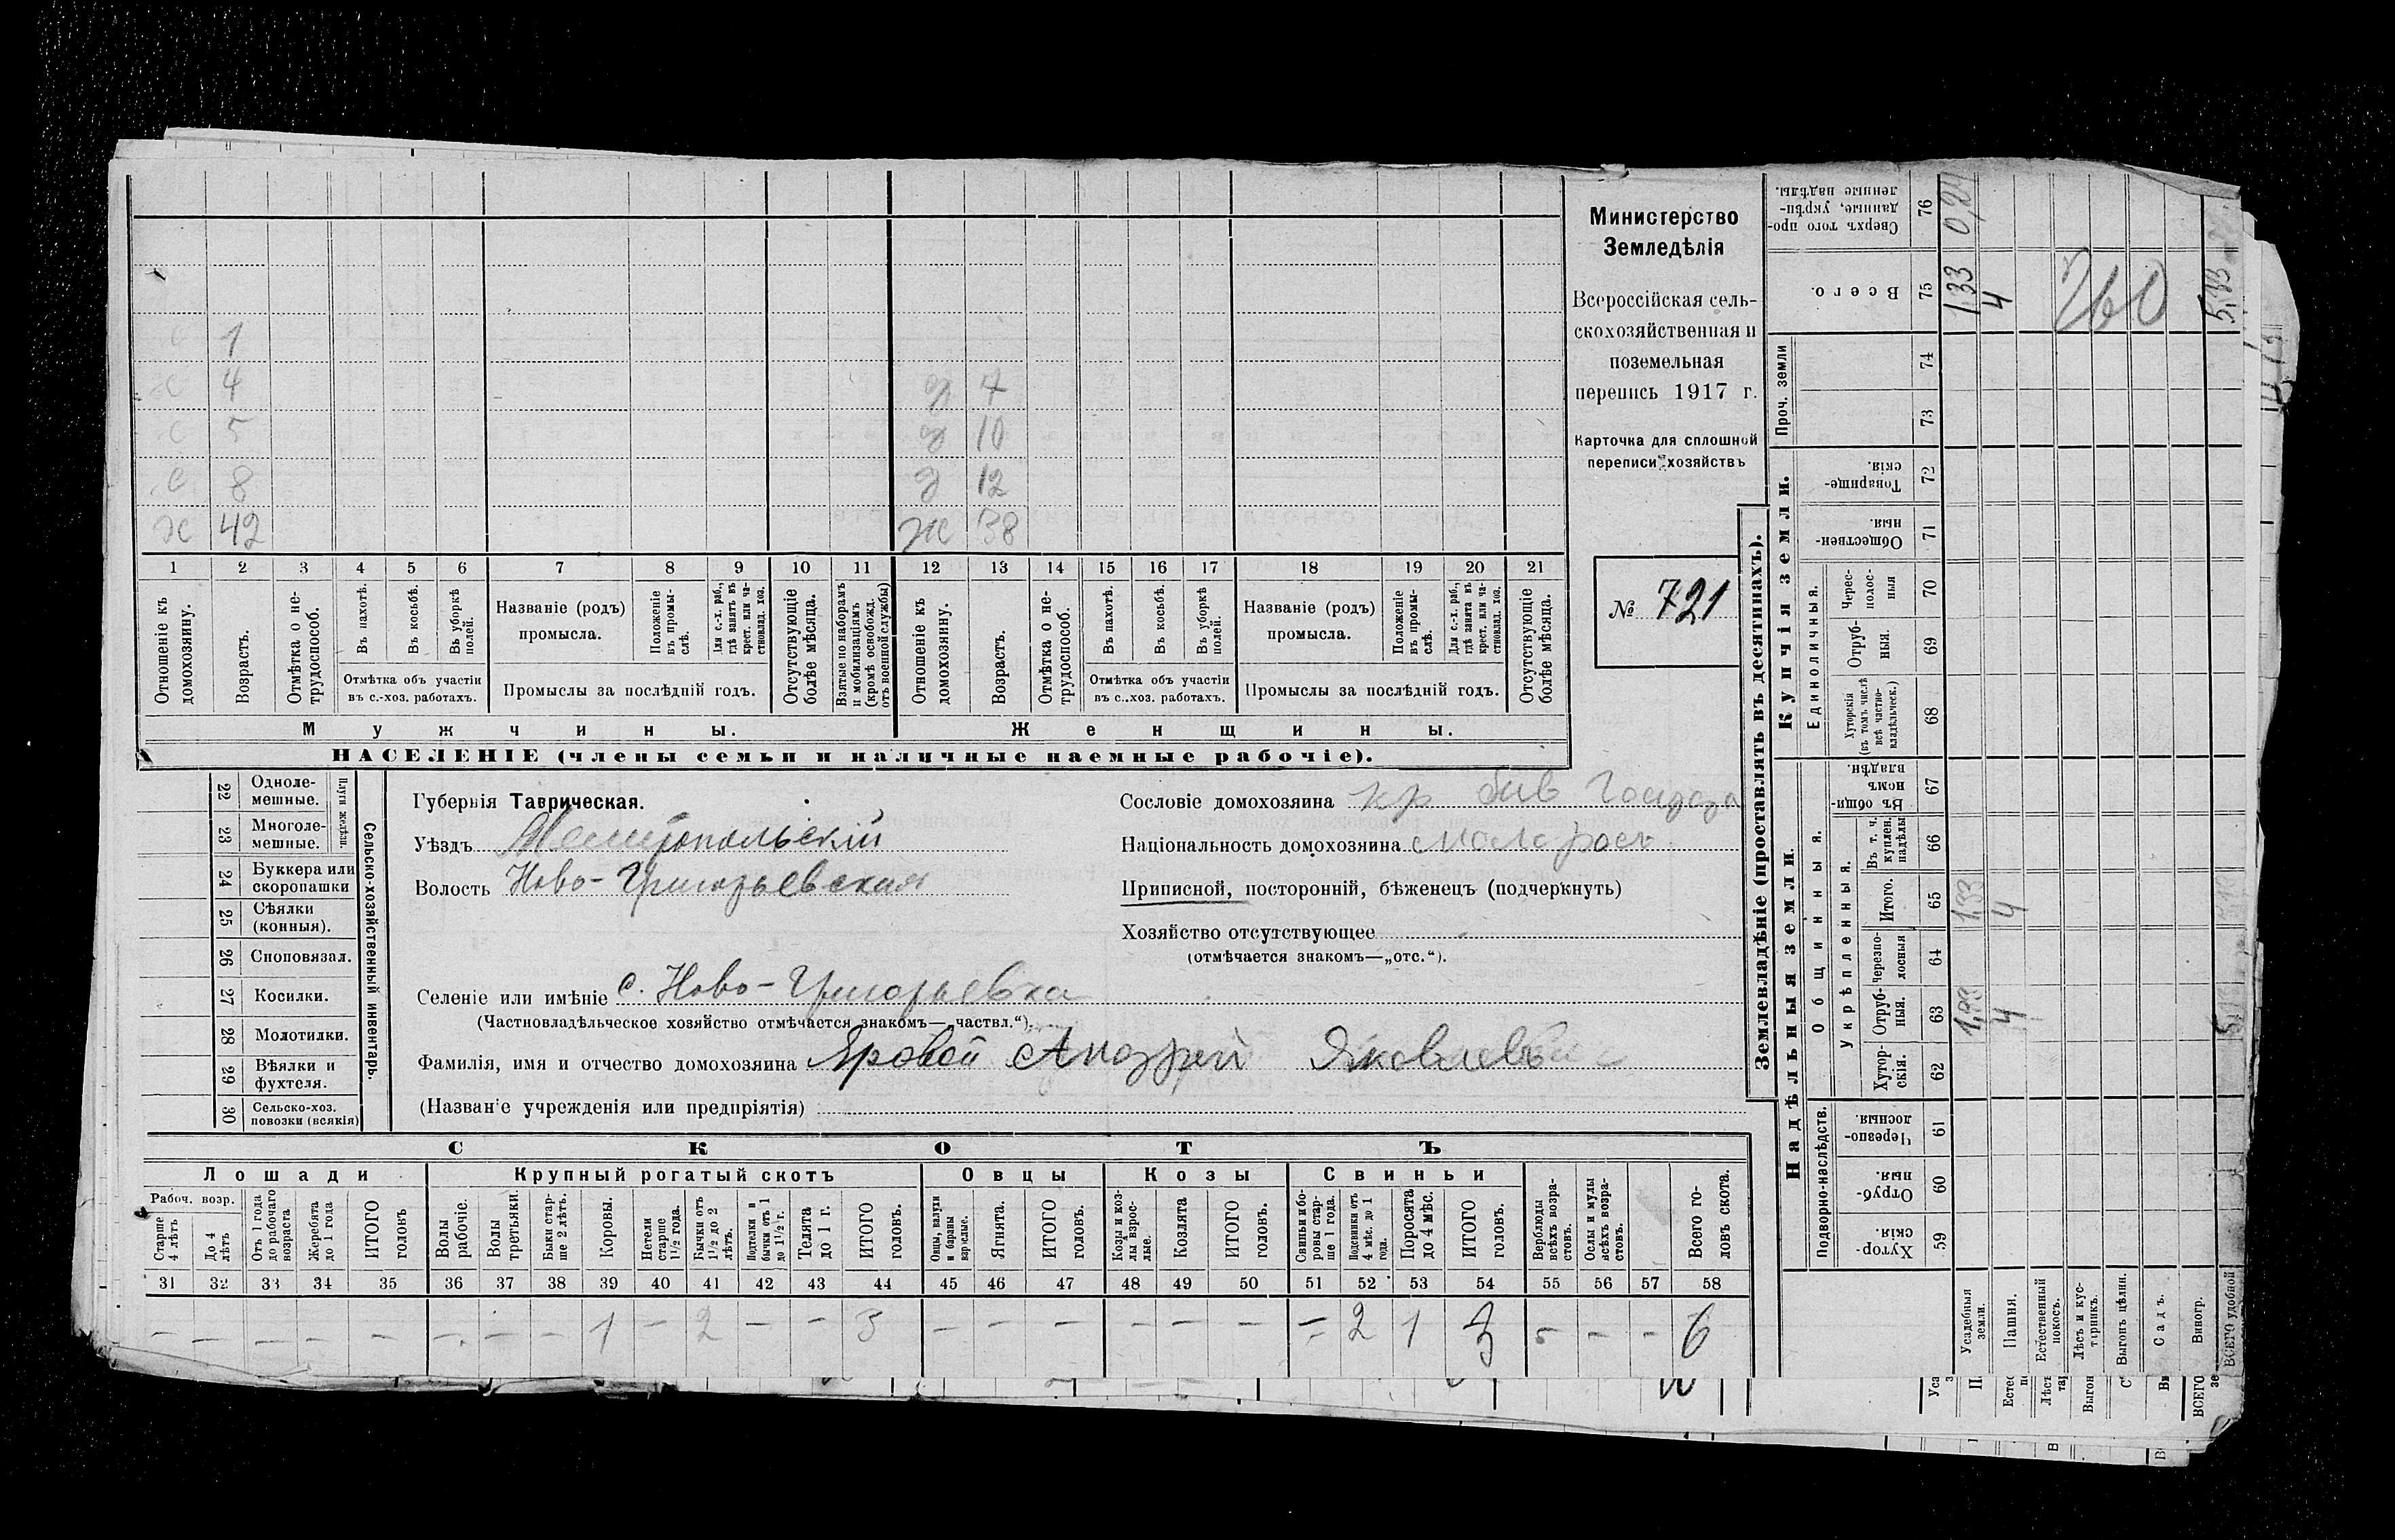 Министерство
Земледѣлія
Всероссійская сель-
скохозяйственная и
поземельная
перепись 1917 г.
Карточка для сплошной
переписи хозяйствъ
№ 721
с 1
с 4 д 7
с 5 д 10
с 8 д 12
х 42 ж 38
1 2 3 4 5 6 7 8 9 10 11 12 13 14 15 16 17 18 19 20 21
Отношеніе къ домохозяину.
Возрастъ.
Отмѣтка о не-трудоспособ.
Въ пахотѣ.
Въ косьбѣ.
Въ уборкѣ полей.
Отмѣтка объ участіи
въ с.-хоз. работахъ.
Названіе (родъ)
промысла.
Положеніе въ промы-слѣ.
Для с.-х. раб., гдѣ занятъ въ крест. или ча-стновлад. хоз.
Промыслы за послѣдній годъ.
Отсутствующіе болѣе мѣсяца.
Взятые по наборамъ и мобилизаціямъ (кромѣ освобожд. отъ военной службы)
Отношеніе къ домохозяину.
Возрастъ.
Отмѣтка о не-трудоспособ.
Въ пахотѣ.
Въ косьбѣ.
Въ уборкѣ полей.
Отмѣтка объ участіи
въ с..хоз. работахъ.
Названіе (родъ)
промысла.
Положеніе въ промы-слѣ.
Для с.-х. раб., гдѣ занята въ крест. или ча-стновлад. хоз.
Промыслы за послѣдній годъ.
Отсутствующіе болѣе мѣсяца.
Мужчины. Женщины.
НАСЕЛЕНІЕ (члены семьи и наличные наемные рабочіе).
Сельско-хозяйственный инвентарь.
Плуги желѣзн.
22 Одноле-мешные.
23 Многоле-мешные.
24 Буккера или скоропашки
25 Сѣялки (конныя).
26 Сноповязал.
27 Косилки.
28 Молотилки.
29 Вѣялки и фухтеля.
30 Сельско-хоз. повозки (всякія)
Губернія Таврическая.
Уѣздъ Мелитопольскій
Волость Ново-Григорьевская
Селеніе или имѣніе с. Ново-Григорьевка
(Частновладѣльческое хозяйство отмѣчается знакомъ—„частвл.“).
Фамилія, имя и отчество домохозяина Яровой Андрей Яковлевъ
(Названіе учрежденія или предпріятія)
Сословіе домохозяина кр быв Госуда
Національность домохозяина малорос.
Приписной, посторонній, бѣженецъ (подчеркнуть)
Хозяйство отсутствующее
(отмѣчается знакомъ—„отс.“).
СКОТЪ
Лошади Крупный рогатый скотъ Овцы Козы Свиньи
Рабоч. возр.
Старше 4 лѣтъ
До 4 лѣтъ
Отъ 1 года до рабочаго возраста
Жеребята до 1 года
ИТОГО головъ
Волы рабочіе.
Волы третьяки.
Быки стар-ше 2 лѣтъ.
Коровы.
Нетели старше 1½ года.
Бычки отъ 1½ до 2 лѣтъ.
Подтелки и бычки отъ 1 до 1½ г.
Телята до 1 г.
ИТОГО головъ.
Овцы, валухи и бараны взрослые.
Ягнята.
ИТОГО головъ.
Козы и коз-лы взрос-лые.
Козлята
ИТОГО головъ.
Свиньи и бо-ровы стар-ше 1 года.
Подсвинки отъ 4 мѣс. до 1 года.
Поросята до 4 мѣс.
ИТОГО головъ.
Верблюды всѣхъ возра-стовъ.
Ослы и мулы всѣхъ возра-стовъ.
Всего го-ловъ скота.
31 32 33 34 35 36 37 38 39 40 41 42 43 44 45 46 47 48 49 50 51 52 53 54 55 56 57 58
— — — — — — — — 1 — 2 — — 3 — — — — — — — 2 1 3 — — — 6
Землевладѣніе (проставлять въ десятинахъ).
Надѣльныя земли. Купчія земли. Проч. земли
Подворно-наслѣдств. Общинныя. Единоличныя.
Укрѣпленныя.
Хутор-скія. 59
Отруб-ныя. 60
Черезпо-лосныя. 61
Хутор-скія. 62
Отруб-ныя. 63
Черезпо-лосныя 64
Итого. 65
Въ т. ч. куплен. надѣлы 66
Въ общи-номъ владѣн. 67
Хуторскія (въ томъ числѣ всѣ частно-владѣльческ.) 68
Отруб-ныя. 69
Черес-полос-ныя 70
Обществен-ныя. 71
Товарище-скія. 72
73
74
Всего. 75
Сверхъ того про-данные, укрѣп-ленные надѣлы. 76
Усадебныя земли. 1,33 1,33 1,33 0,24
Пашня. 4 4 4
Естественный покосъ.
Лѣсъ и кус-тарникъ.
Выгонъ цѣлин.
Садъ.
Виногр.
ВСЕГО удобной 5,33
260